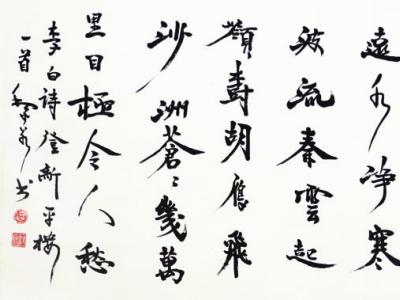 遠水淨寒
波流秦雲起
嶺樹胡雁飛
沙洲蒼〻幾萬
里目極令人愁
李白詩登新平樓
一首 书